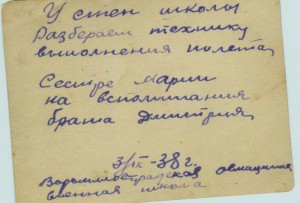 У стен школы
Разбераем технику
выполнения полета,
Сестре Марии
на вспоминания
брата Дмитрия,
3/IX-38 г.
Ворошиловградская авиацион
военная школа